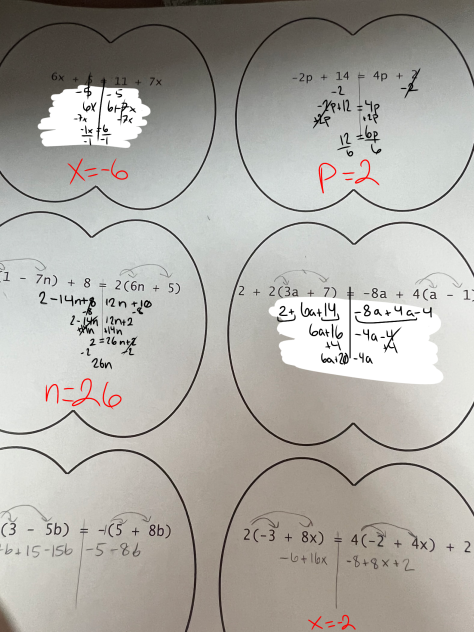 6x + 5 = 11 + 7x
-5 | -5
6x | 6+7x
-7x | -7x
-1x = 6
-1 | -1
x=-6
-2p + 14 = 4p + 2
-2 -2
-2p+12 = 4p
+2p +2p
12 = 6p
6 6
p=2
(1 - 7n) + 8 = 2(6n + 5)
2-14n+8 | 12n +10
-8 | -8
2-14n | 12n+2
+14n | +14n
2 = 26n+2
-2 -2
26n
n=26
2 + 2(3a + 7) = -8a + 4(a - 1)
2+ 6a+14 | -8a+4a-4
6a+16 | -4a-4
+4 | +4
6a+20 | -4a
(3 - 5b) = -1(5 + 8b)
-6+15-15b | -5-8b
2(-3 + 8x) = 4(-2 + 4x) + 2
-6+16x | -8+8x+2
x=-2